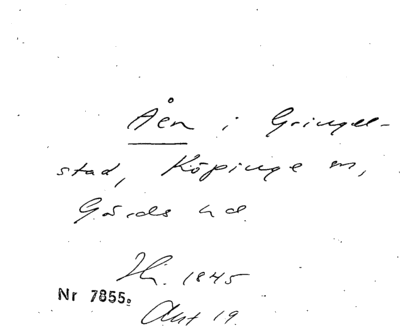 Åen i Gringel-
stad, Köpinge sn,
Gärds hd.
Hi. 1845
Nr 7855.
Akt 19